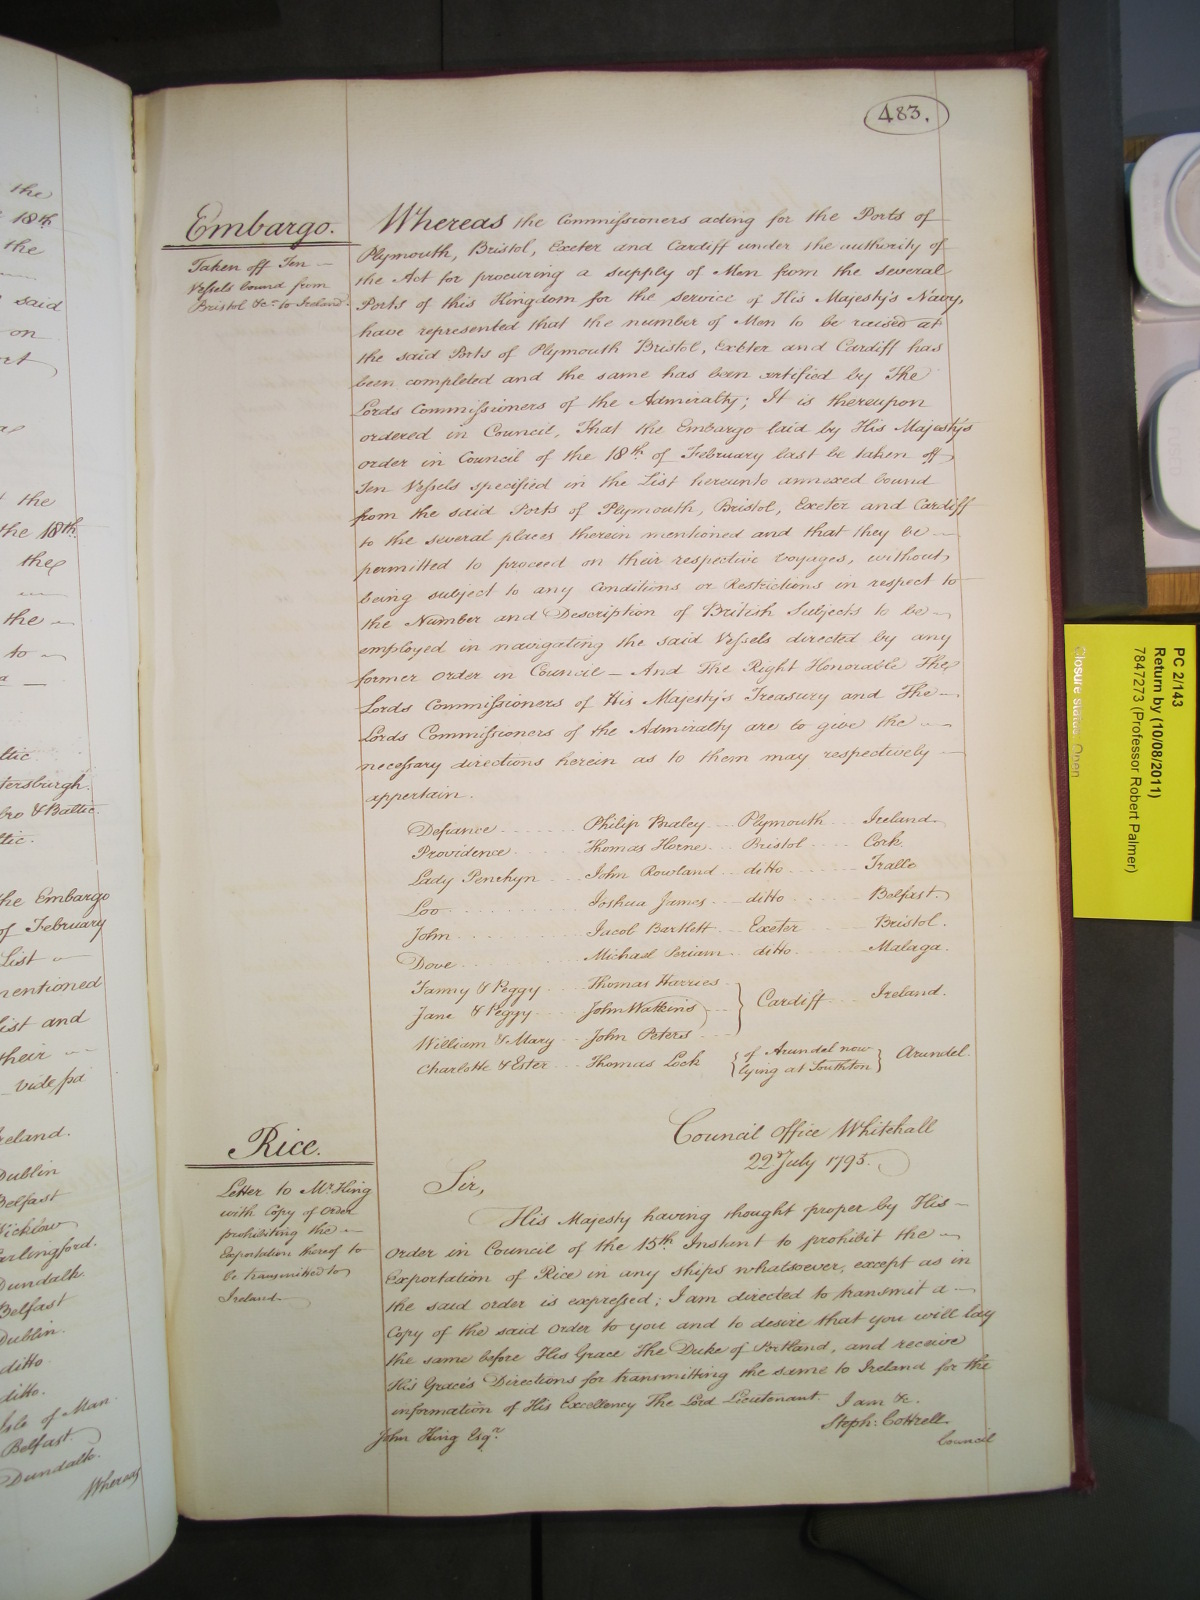 483.
Embargo.
Taken off Ten
Vessels bound from
Bristol &c. to Ireland.
Whereas the Commissioners acting for the Ports of
Plymouth, Bristol, Exeter and Cardiff under the authority of
the Act for procuring a supply of Men from the several
Ports of this Kingdom for the service of His Majesty's Navy,
have represented that the number of Men to be raised at
the said Ports of Plymouth Bristol, Exeter and Cardiff has
been completed and the same has been certified by The
Lords Commissioners of the Admiralty; It is thereupon
ordered in Council, That the Embargo laid by His Majesty's
order in Council of the 18th of February last be taken off
Ten Vessels specified in the List hereunto annexed bound
from the said Ports of Plymouth, Bristol, Exeter and Cardiff
to the several places therein mentioned and that they be
permitted to proceed on their respective Voyages, without
being subject to any Conditions or Restrictions in respect to
the Number and Description of British Subjects to be
employed in navigating the said Vessels directed by any
former Order in Council — And The Right Honorable The
Lords Commissioners of His Majesty's Treasury and The
Lords Commissioners of the Admiralty are to give the
necessary directions herein as to them may respectively
appertain.
Defiance Philip Braley Plymouth Ireland
Providence Thomas Horne Bristol Cork
Lady Penrhyn John Rowland ditto Tralle
Loo Joshua James ditto Belfast
John Jacob Bartlett Exeter Bristol.
Dove Michael Periam ditto Malaga.
Fanny & Peggy Thomas Harries
Jane & Peggy John Watkins Cardiff Ireland.
William & Mary John Peters
Charlotte & Ester Thomas Lock of Arundel now lying at Southton Arundel.
Council Office Whitehall
22d July 1795.
Rice.
Letter to Mr. King
with Copy of Order
prohibiting the
Exportation thereof to
be transmitted to
Ireland
Sir,
His Majesty having thought proper by His
Order in Council of the 15th Instant to prohibit the
Exportation of Rice in any ships whatsoever, except as in
the said Order is expressed; I am directed to transmit a
Copy of the said Order to you and to desire that you will lay
the same before His Grace The Duke of Portland, and receive
His Grace's Directions for transmitting the same to Ireland for the
information of His Excellency The Lord Lieutenant. I am &c.
Steph: Cottrell
John King Esqr.
Council
the
18th
the
said
on
the
the 18th
the
the
to
Baltic.
he Embargo
of February
List
mentioned
list and
their
vide pa
Ireland.
Dublin
Belfast
Wicklow
Carlingford.
Dundalk
Belfast
Dublin.
ditto
ditto.
Isle of Man
Belfast.
Dundalk.
Whereas
PC 2/143
Return by (10/08/2011)
7847273 (Professor Robert Palmer)
Closure status: Open